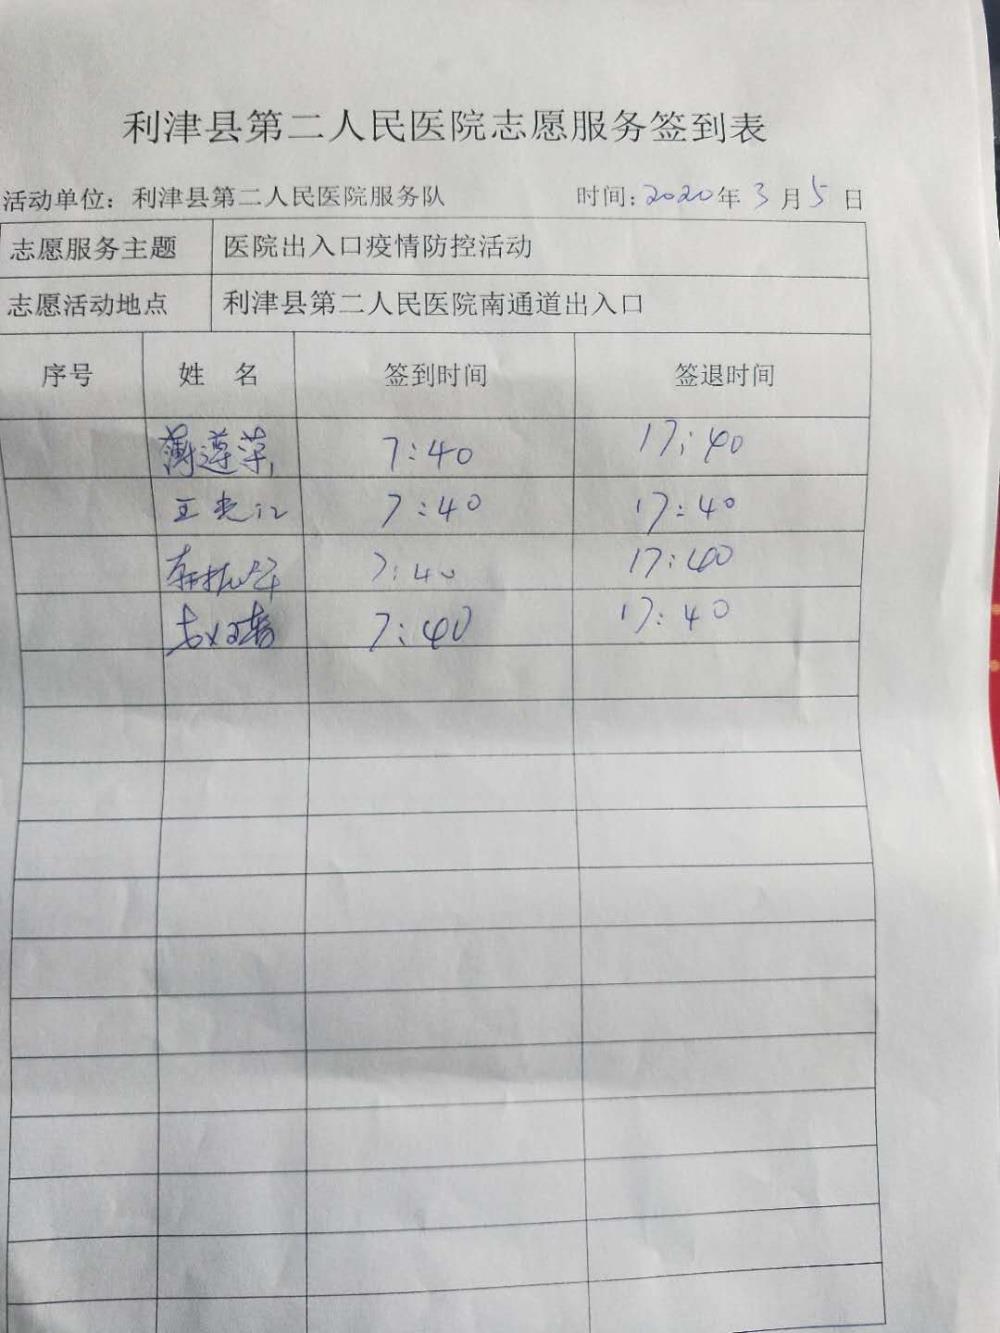 利津县第二人民医院志愿服务签到表
活动单位：利津县第二人民医院服务队 时间：2020年3月5日
志愿服务主题 医院出入口疫情防控活动
志愿活动地点 利津县第二人民医院南通道出入口
序号 姓 名 签到时间 签退时间
薄遵萍 7:40 17:40
王光江 7:40 17:40
7:40 17:40
7:40 17:40